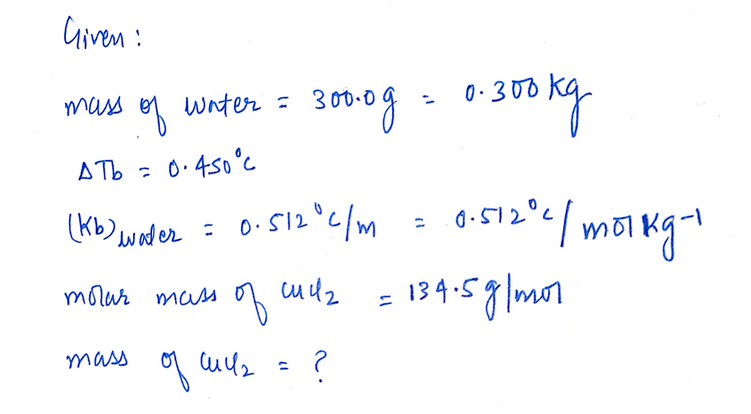 Given :
mass of water = 300.0g = 0.300 kg
ΔTb = 0.450°C
(Kb)water = 0.512°C/m = 0.512°C/mol kg-1
molar mass of CuCl2 = 134.5 g/mol
mass of CuCl2 = ?